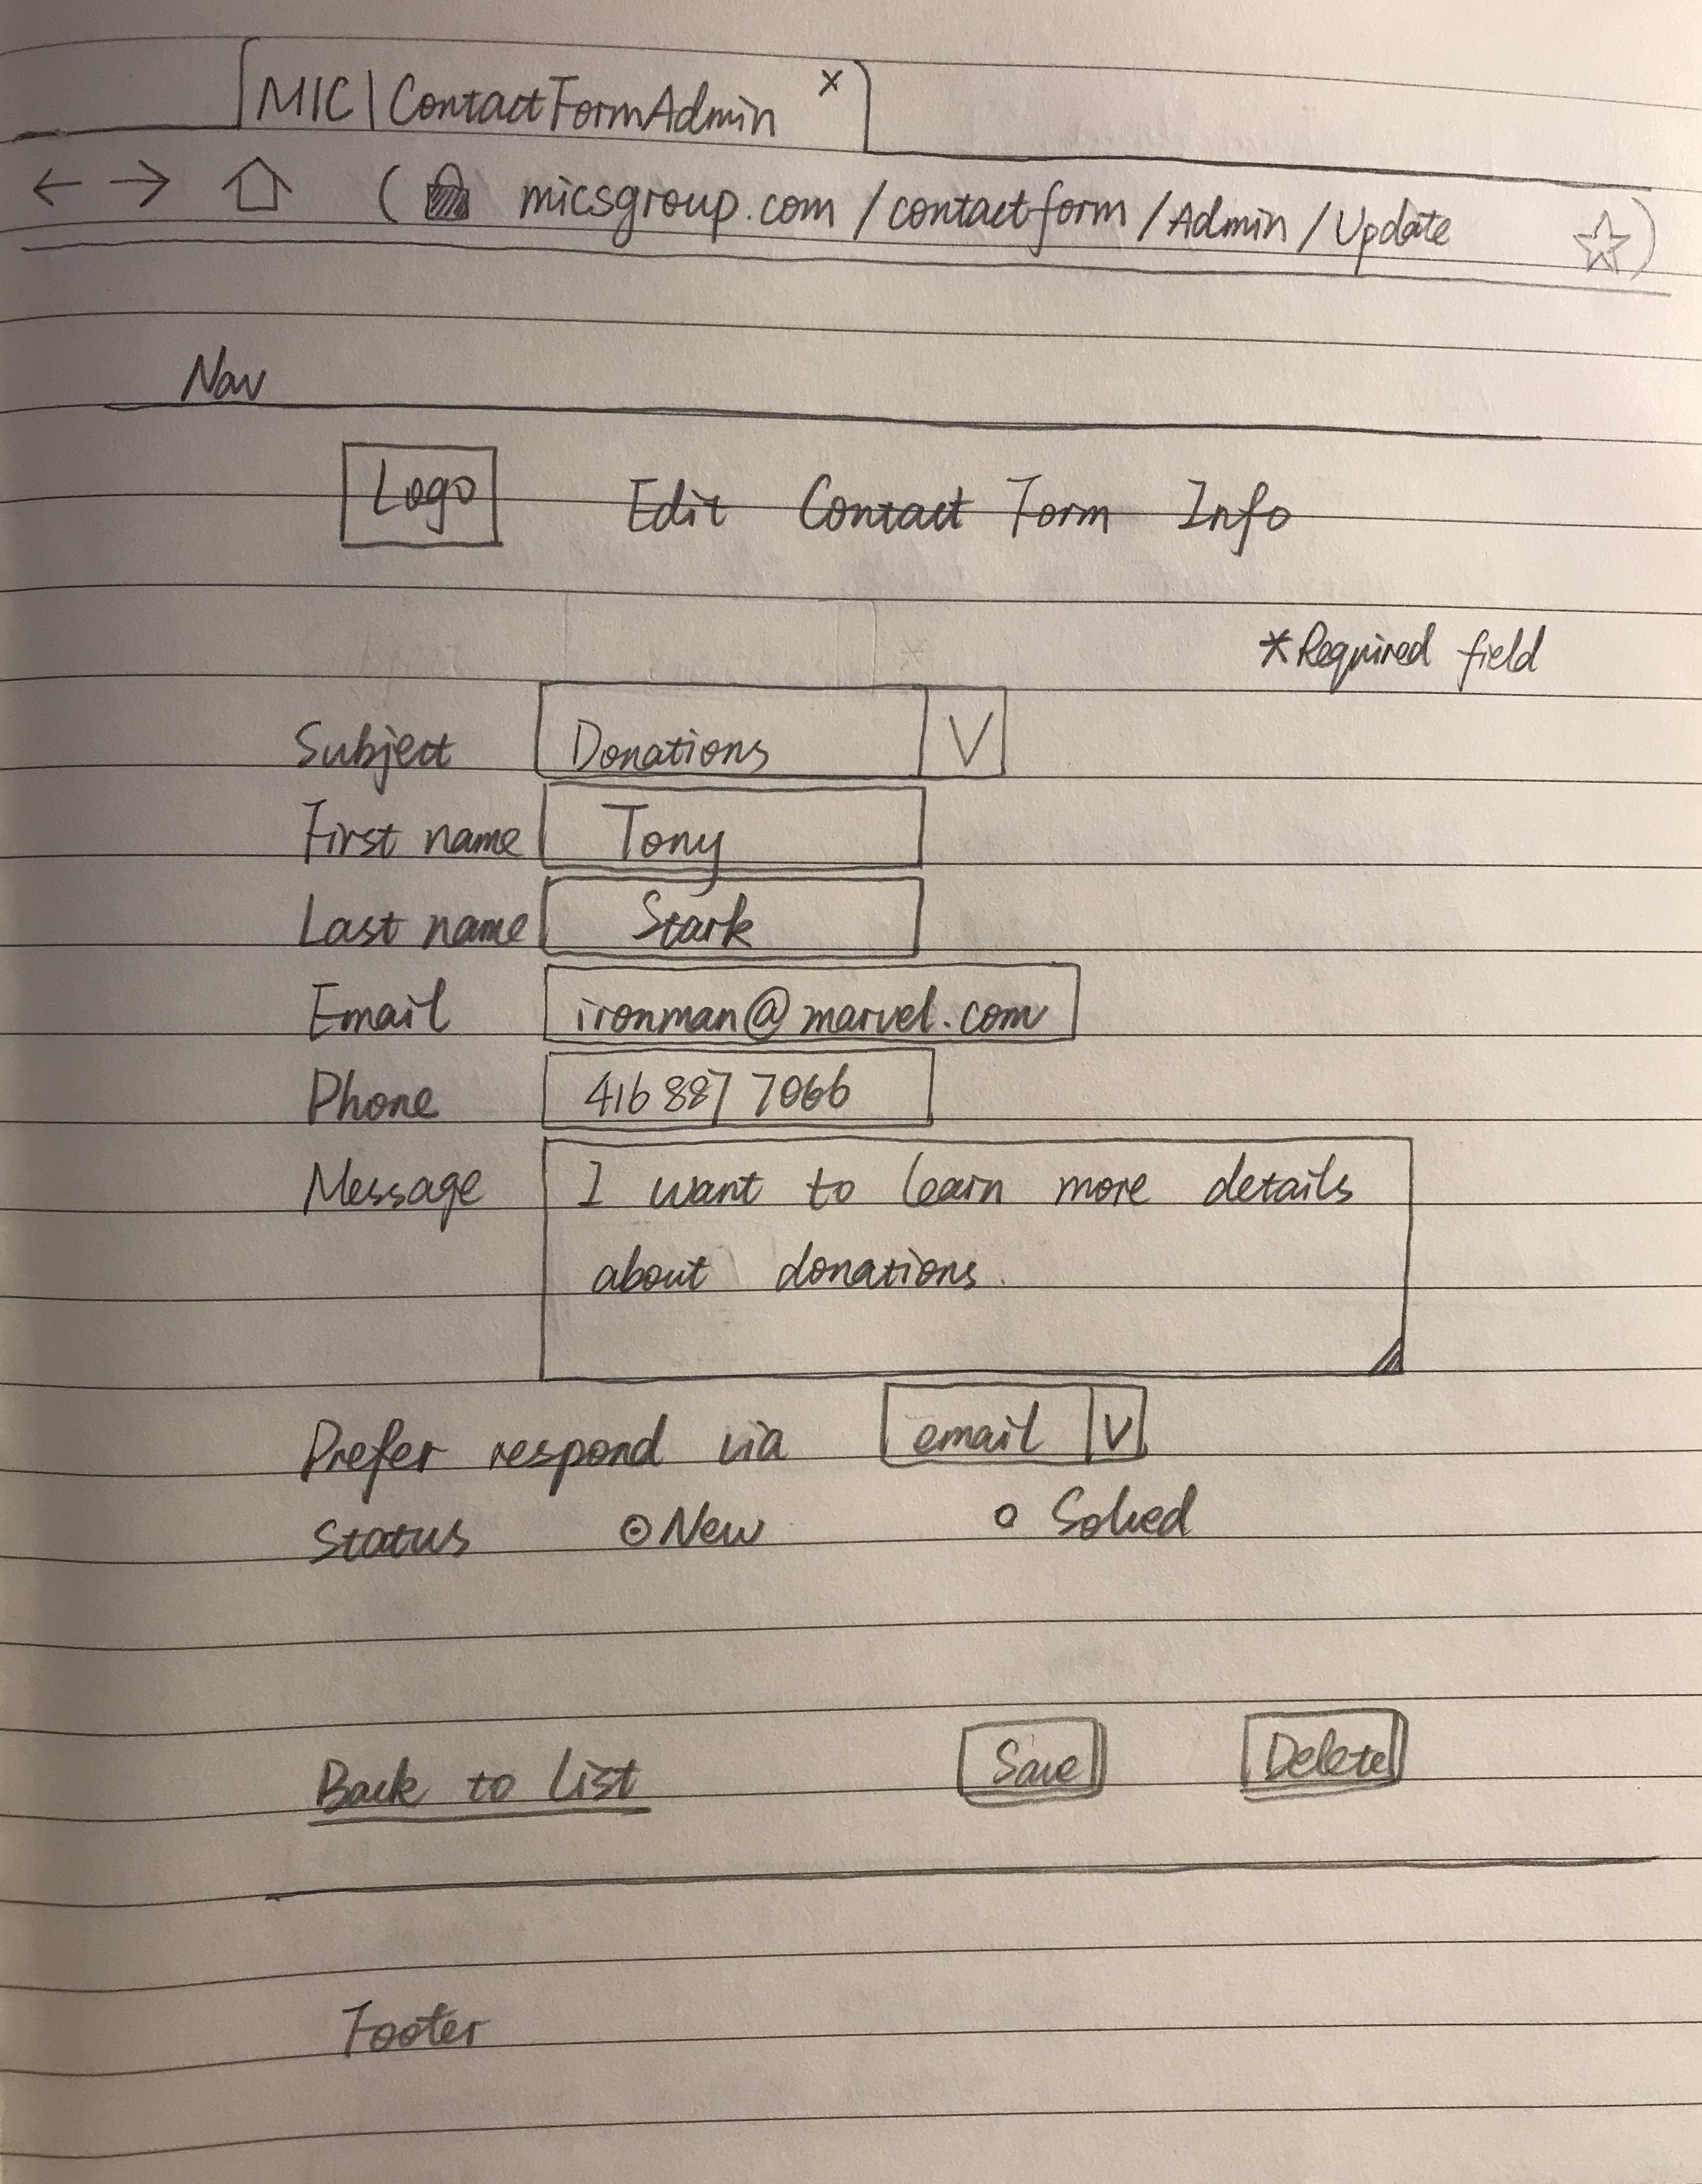 MIC | ContactFormAdmin x
micsgroup.com/contactform/Admin/Update
Nav
Logo Edit Contact Form Info
*Required field
Subject Donations V
First name Tony
Last name Stark
Email ironman@marvel.com
Phone 416 887 7066
Message I want to learn more details
about donations.
Prefer respond via email V
Status New Solved
Back to List Save Delete
Footer